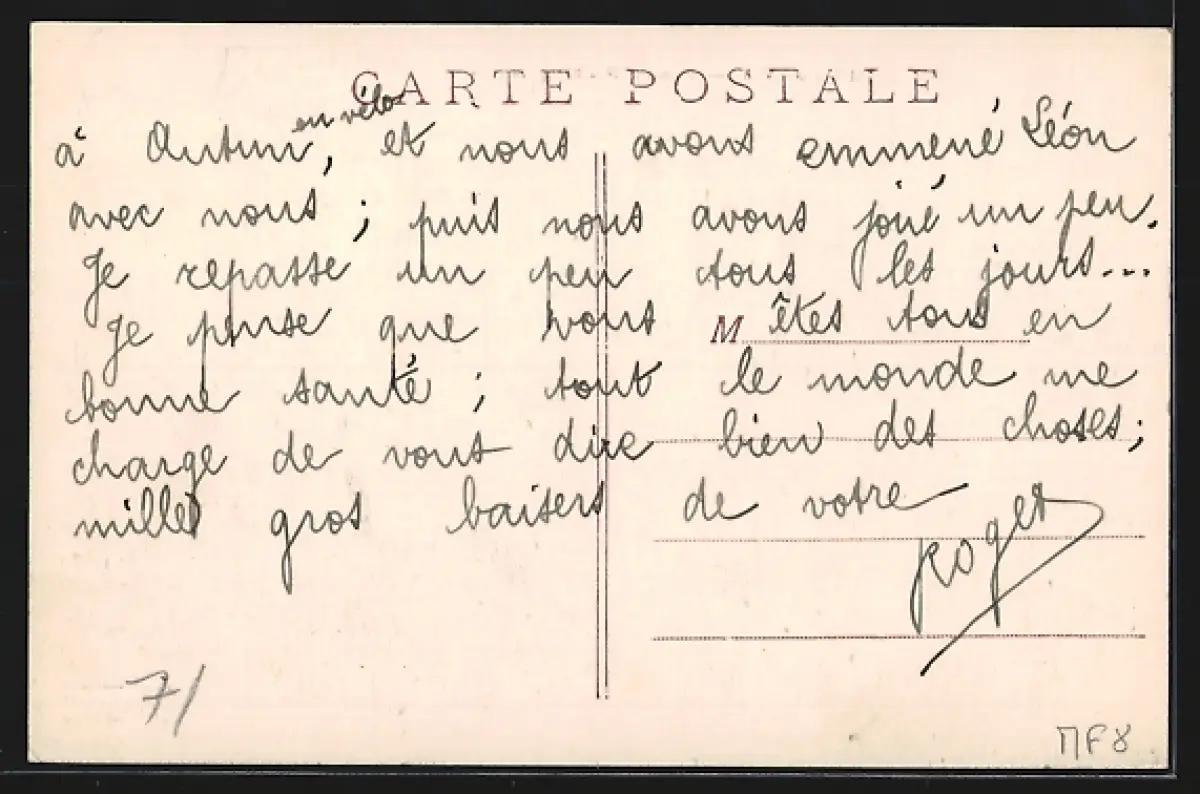 CARTE POSTALE
en vélo
à Autun, et nous avons emmené Léon
avec nous ; puis nous avons joué un peu.
Je repasse un peu tous les jours...
Je pense que vous M êtes tous en
bonne santé ; tout le monde me
charge de vous dire bien des choses ;
mille gros baisers de votre
Roger
7/
MF8